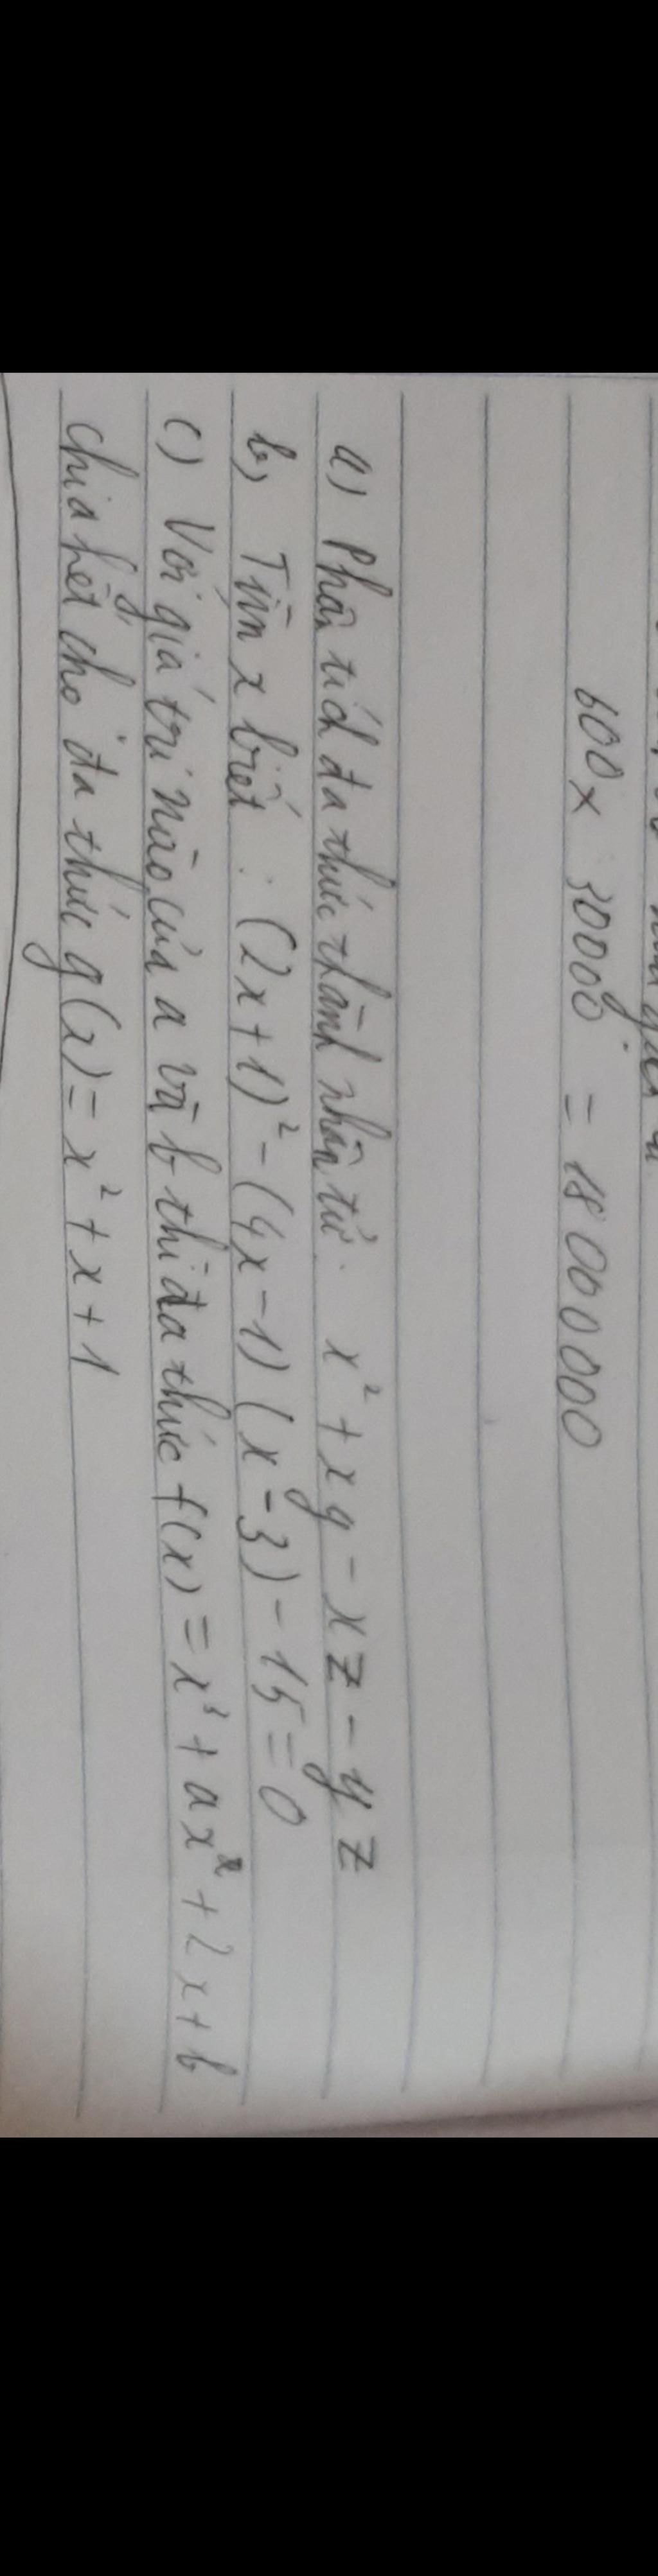 600 x 30000 = 18 000 000
a) Phân tích đa thức thành nhân tử. x² + xy - xz - yz
b) Tìm x biết : (2x + 1)² - (4x - 1) (x - 3) - 15 = 0
c) Với giá trị nào của a và b thì đa thức f(x) = x³ + ax² + 2x + b
chia hết cho đa thức g(x) = x² + x + 1